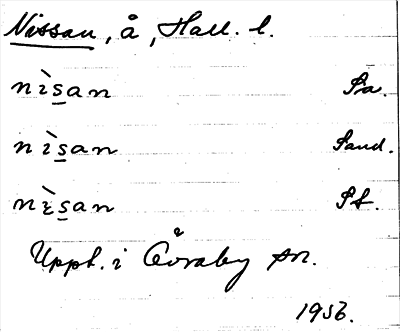 Nissan, å, Hall. l.
nìsan Pa.
nìsan Sand.
nìsan St.
Uppt. i Båraby sn.
1956.